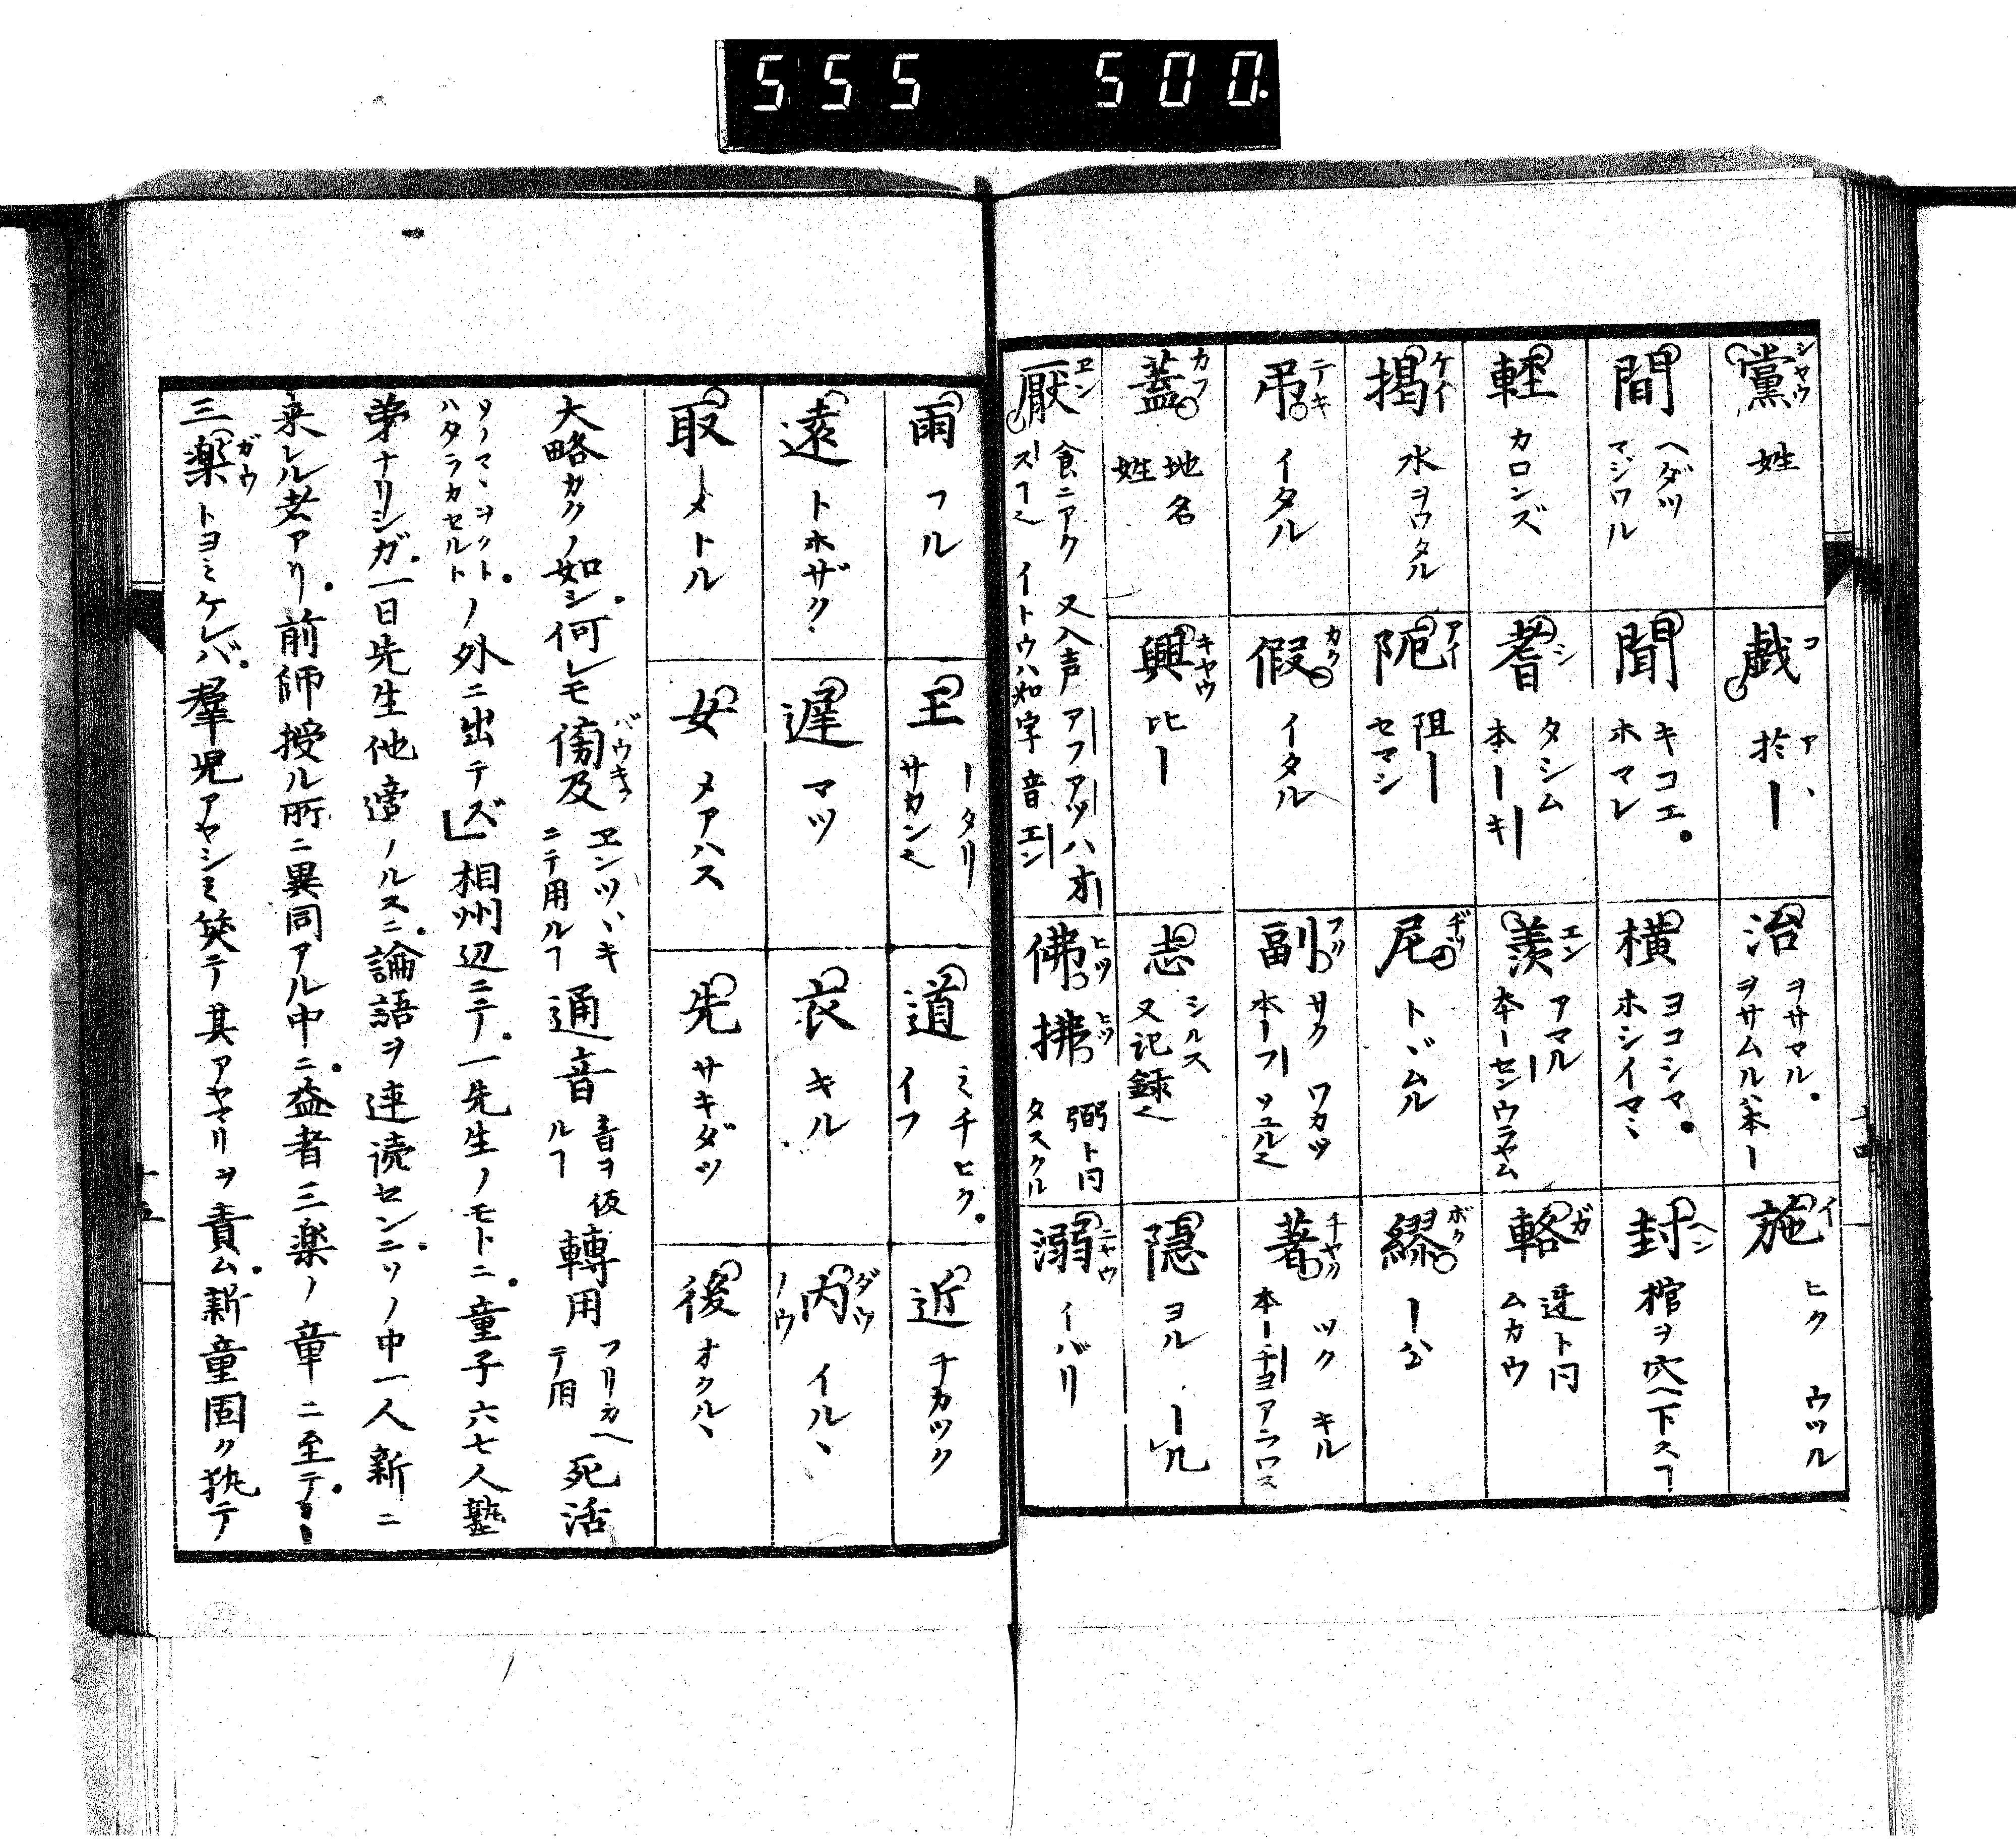 555 500.
黨 シヤウ 姓
戯 コ 於ー ア、
治 ヲサマル。 ヲサムルハ本ー
施 イ ヒク ウツル
間 ヘダツ マジワル
聞 キコエ。 ホマレ
横 ヨコシマ。 ホシイマミ
封 ヘン 棺ヲ穴ヘ下スヿ
軽 カロンズ
耆 シ タシム 本ーキ
羨 エン アマル 本ーセンウラヤム
輅 ガ 迓ト同 ムカウ
掲 ケイ 水ヲワタル
阨 アイ 阻ー セマシ
尼 ヂツ トヾムル
繆 ボク ー公
弔 テキ イタル
假 カク イタル
副 フク サク ワカツ 本ーフ ソユル也
著 チヤク ツク キル 本ーチヨアラワス
蓋 カフ 地名 姓
興 キヤウ 比ー
志 シルス 又記録也
隠 ヨル ール
厭 エン 食ニアク 又入声 アフアツハオ
スヿ也 イトウハ如字 音エン
佛 ヒツ 拂 ヒツ 弼ト同 タスクル
溺 ニヤウ イバリ
雨 フル
王 ータリ サカン也
道 ミチヒク。 イフ
近 チカツク
遠 トホザク
遅 マツ
衣 キル
内 ダウ ノウ イル丶
取 ーメトル
女 メアハス
先 サキダツ
後 オクル丶
大略カクノ如シ。何レモ傍及 バウキフ エンツヾキニテ用ルヿ 通音 音ヲ仮ルヿ 轉用 フリカヘテ用 死活
ソノマヽヲクト。ハタラカセルト ノ外ニ出テズ」相州辺ニテ。一先生ノモトニ。童子六七人塾
弟ナリシガ。一日先生他適ノルスニ。論語ヲ連読センニ。ソノ中一人新ニ
来レル者アリ。前師授ル所ニ異同アル中ニ。益者三楽ノ章ニ至テ。ー
三楽 ガウ トヨミケレバ。羣児アヤシミ笑テ其アヤマリヲ責ム。新童固ク執テ